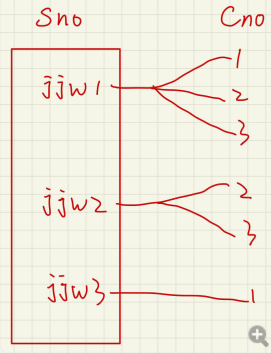 Sno Cno
jjw1 1
2
3
jjw2 2
3
jjw3 1